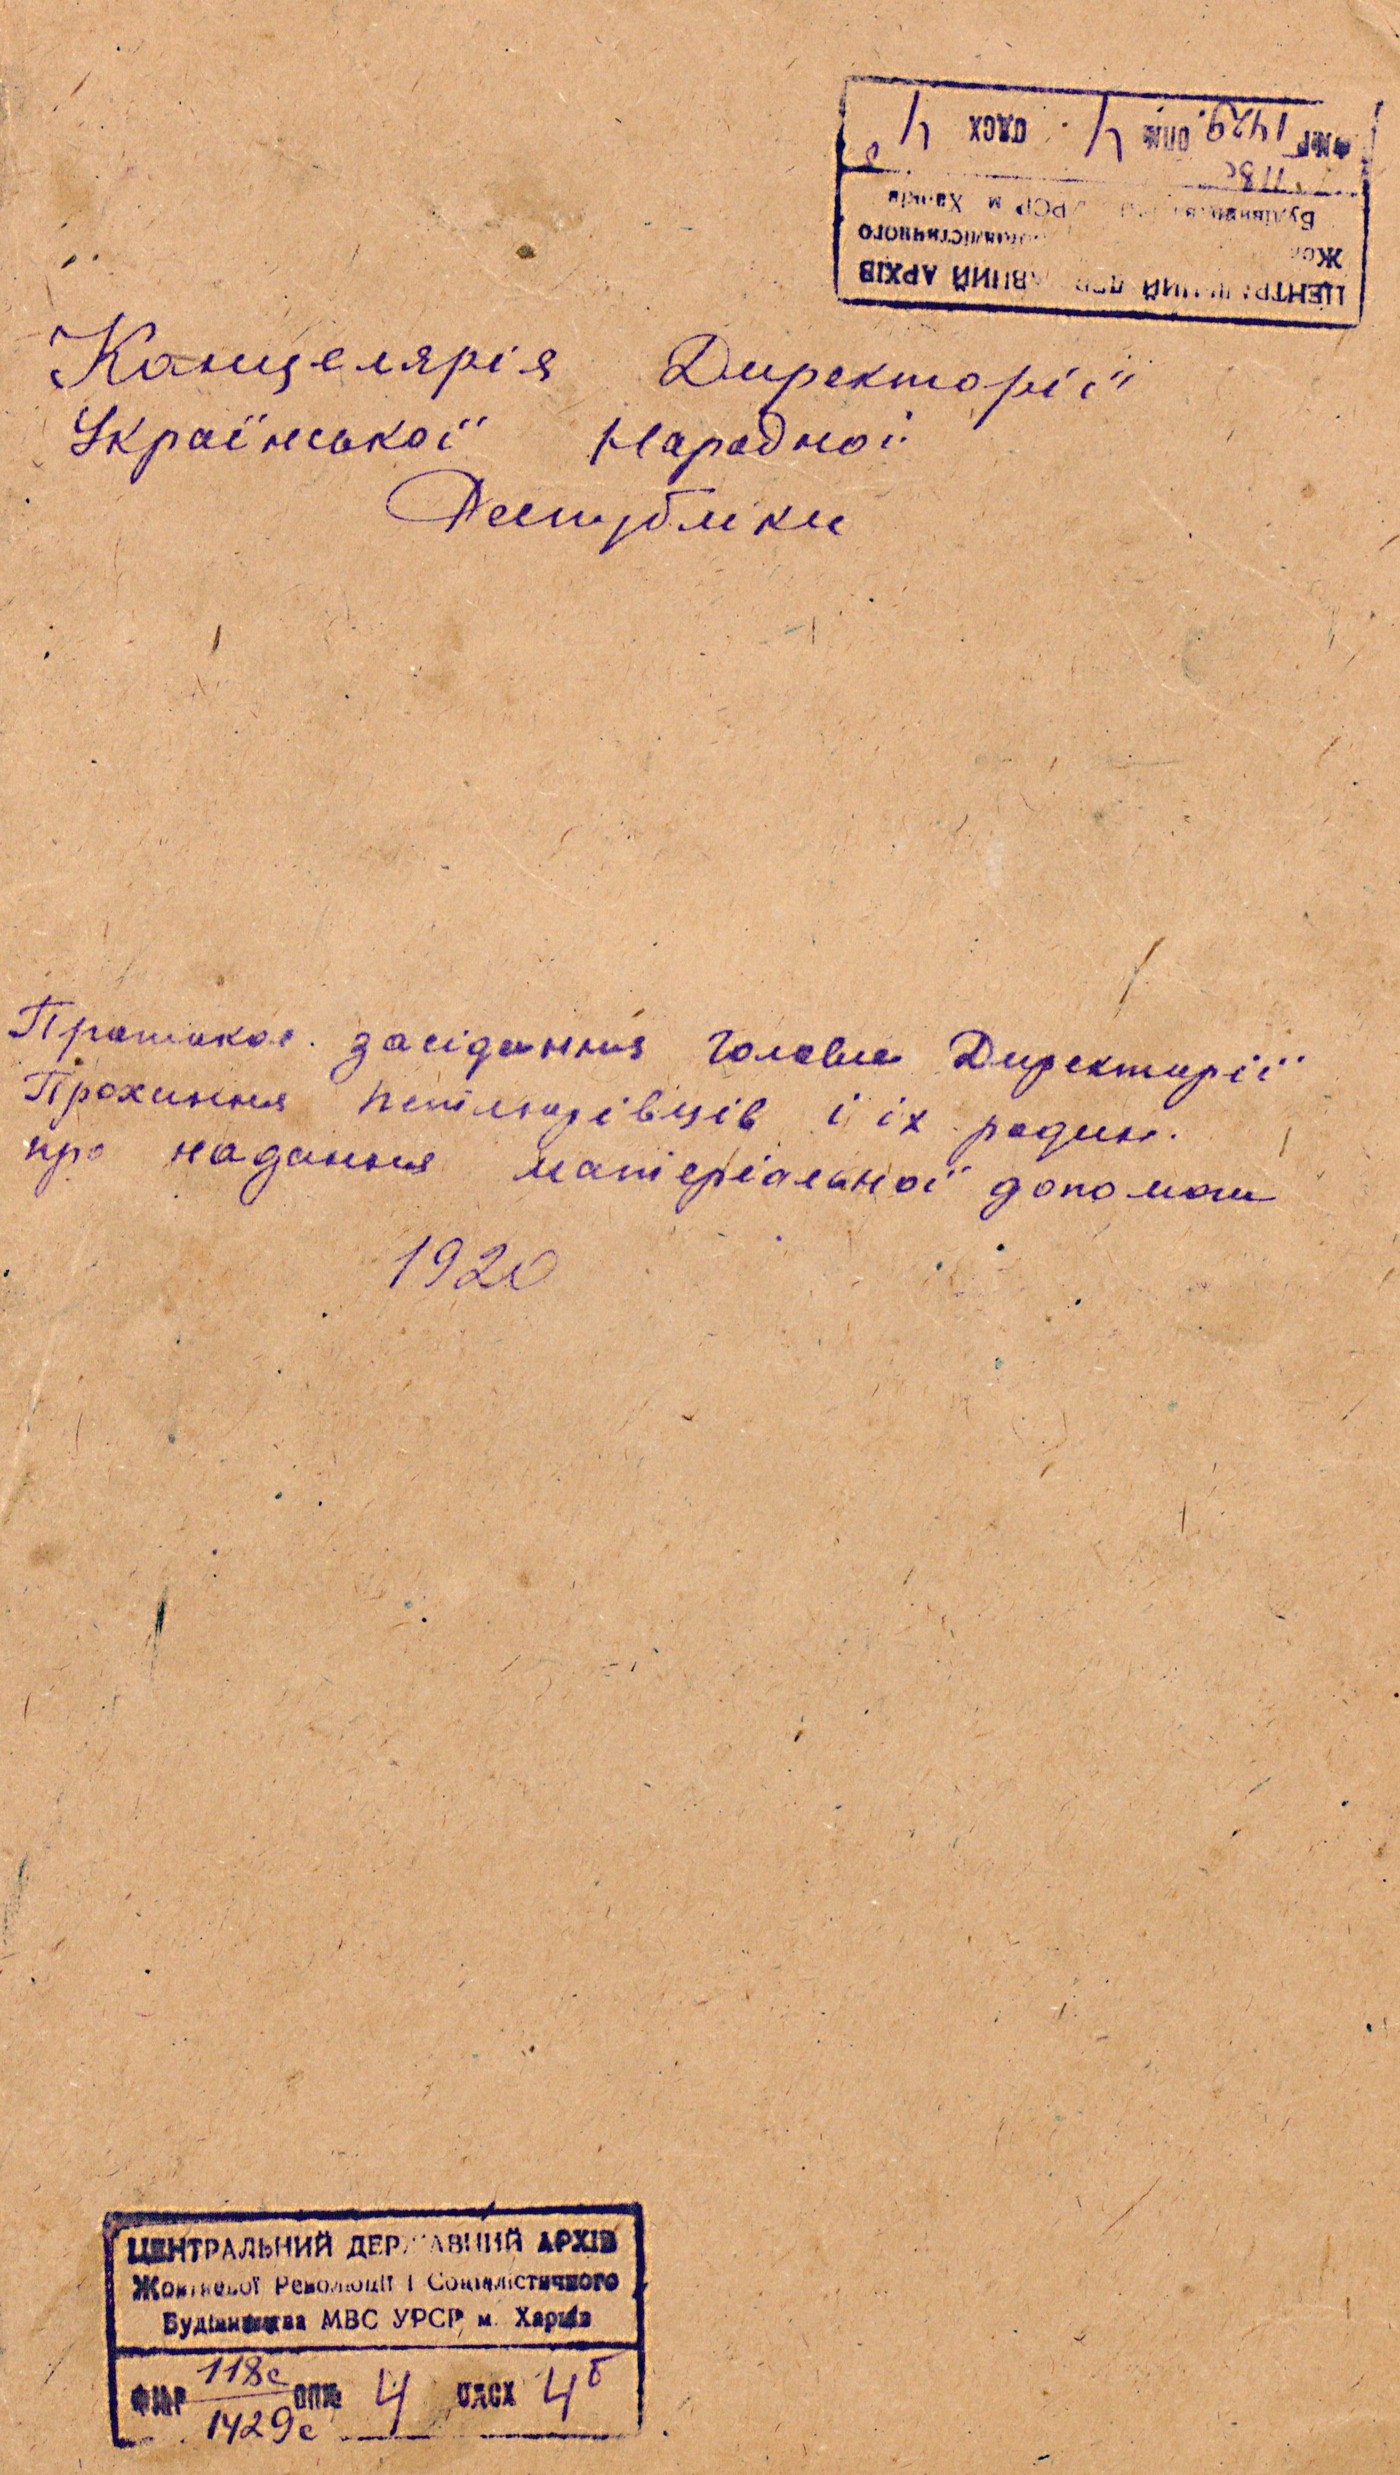 ЦЕНТРАЛЬНИЙ АРХІВ
Соціалістичного
Будівництва УРСР м Харків
118с
Ф№Р 1429с ОП№ 4 ОДСХ 4
Канцелярія Директорії
Української Народної
Республіки
Протокол засідання Голови Директорії
Прохання петлюрівців і іх родин.
про надання матеріальної допомоги
1920
ЦЕНТРАЛЬНИЙ ДЕРЖАВНИЙ АРХІВ
Жовтневої Революції і Соціалістичного
Будівництва МВС УРСР м. Харків
118с
Ф№Р ОП№ 4 ОДСХ 4б
1429с